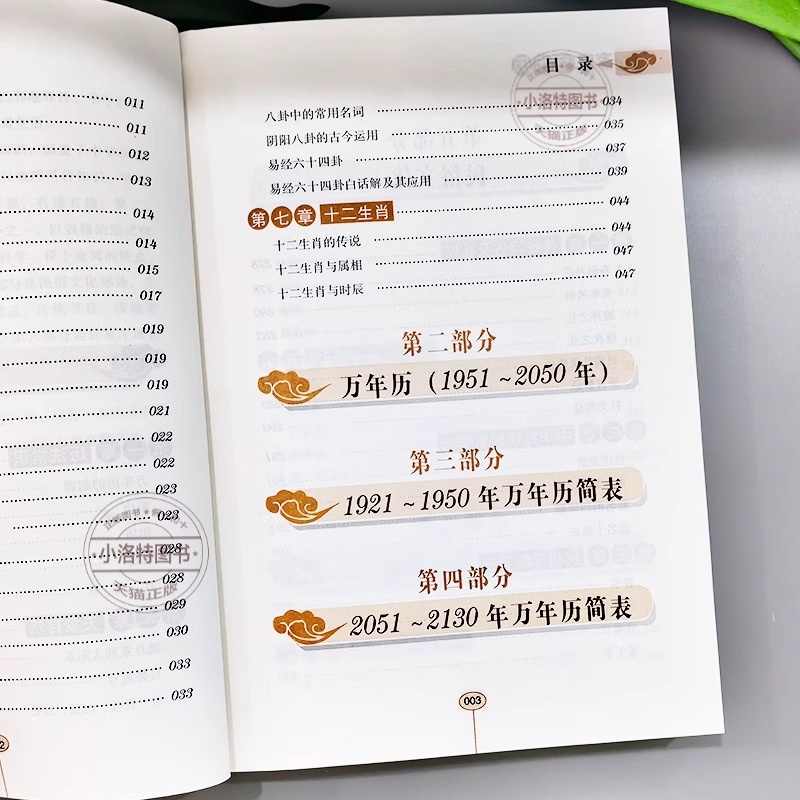 011
011
012
013
014
014
015
017
019
019
019
021
022
022
023
023
028
028
029
030
033
033
2
小洛特图书
天猫正版
目录
八卦中的常用名词 034
阴阳八卦的古今运用 035
易经六十四卦 037
易经六十四卦白话解及其应用 039
第七章 十二生肖 044
十二生肖的传说 044
十二生肖与属相 047
十二生肖与时辰 047
第二部分
万年历（1951～2050年）
第三部分
1921～1950年万年历简表
第四部分
2051～2130年万年历简表
003
小洛特图书
天猫正版